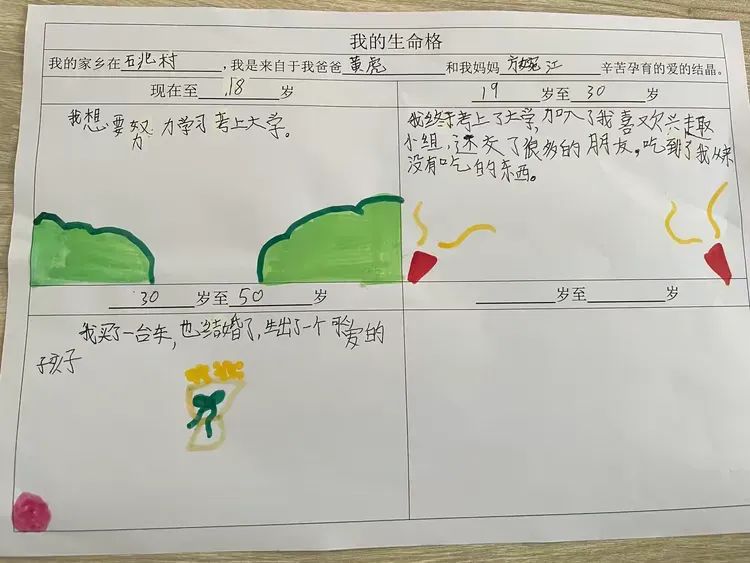 我的生命格
我的家乡在石北村,我是来自于我爸爸黄虎和我妈妈方婉江辛苦孕育的爱的结晶。
现在至18岁
我想要努力学习考上大学。
19岁至30岁
我终于考上了大学,加入了我喜欢兴趣
小组,还交了很多的朋友。吃到了我从来
没有吃的东西。
30岁至50岁
我买了一台车,也结婚了,生出了一个可爱的
孩子
岁至岁